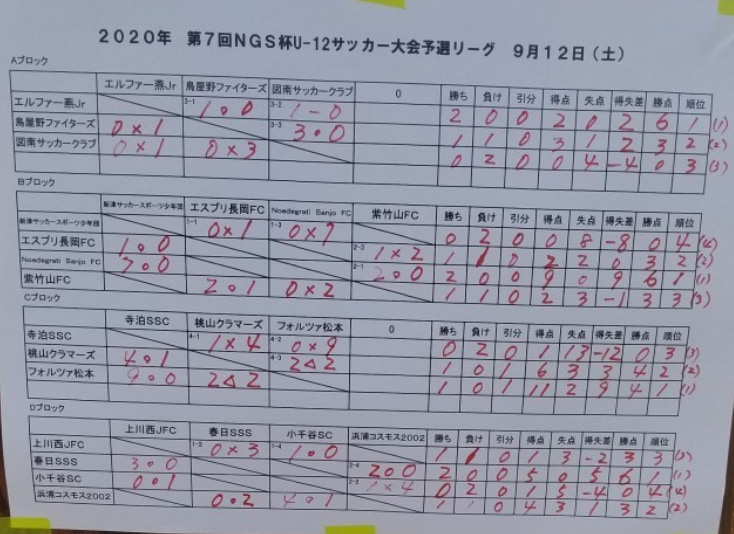 2020年 第7回NGS杯U-12サッカー大会予選リーグ 9月12日（土）
Aブロック
エルファー燕Jr 鳥屋野ファイターズ 図南サッカークラブ 0 勝ち 負け 引分 得点 失点 得失差 勝点 順位
エルファー燕Jr 3-1 1○0 3-2 1-0 2 0 0 2 0 2 6 1 (1)
鳥屋野ファイターズ 0×1 3-3 3○0 1 1 0 3 1 2 3 2 (2)
図南サッカークラブ 0×1 0×3 0 2 0 0 4 -4 0 3 (3)
Bブロック
新津サッカースポーツ少年団 エスプリ長岡FC Noedegrati Sanjo FC 紫竹山FC 勝ち 負け 引分 得点 失点 得失差 勝点 順位
新津サッカースポーツ少年団 1-1 0×1 1-3 0×7 0 2 0 0 8 -8 0 4 (4)
エスプリ長岡FC 1○0 2-3 1×2 1 1 0 2 2 0 3 2 (2)
Noedegrati Sanjo FC 7○0 2-1 2○0 2 0 0 9 0 9 6 1 (1)
紫竹山FC 2○1 0×2 1 1 0 2 3 -1 3 3 (3)
Cブロック
寺泊SSC 桃山クラマーズ フォルツァ松本 0 勝ち 負け 引分 得点 失点 得失差 勝点 順位
寺泊SSC 4-1 1×4 4-2 0×9 0 2 0 1 13 -12 0 3 (3)
桃山クラマーズ 4○1 4-3 2△2 1 0 1 6 3 3 4 2 (2)
フォルツァ松本 9○0 2△2 1 0 1 11 2 9 4 1 (1)
Dブロック
上川西JFC 春日SSS 小千谷SC 浜浦コスモス2002 勝ち 負け 引分 得点 失点 得失差 勝点 順位
上川西JFC 1-2 0×3 1-4 1○0 1 1 0 1 3 -2 3 3 (3)
春日SSS 3○0 2-4 2○0 2 0 0 5 0 5 6 1 (1)
小千谷SC 0○1 2-2 1×4 0 2 0 1 5 -4 0 4 (4)
浜浦コスモス2002 0○2 4○1 1 1 0 4 3 1 3 2 (2)